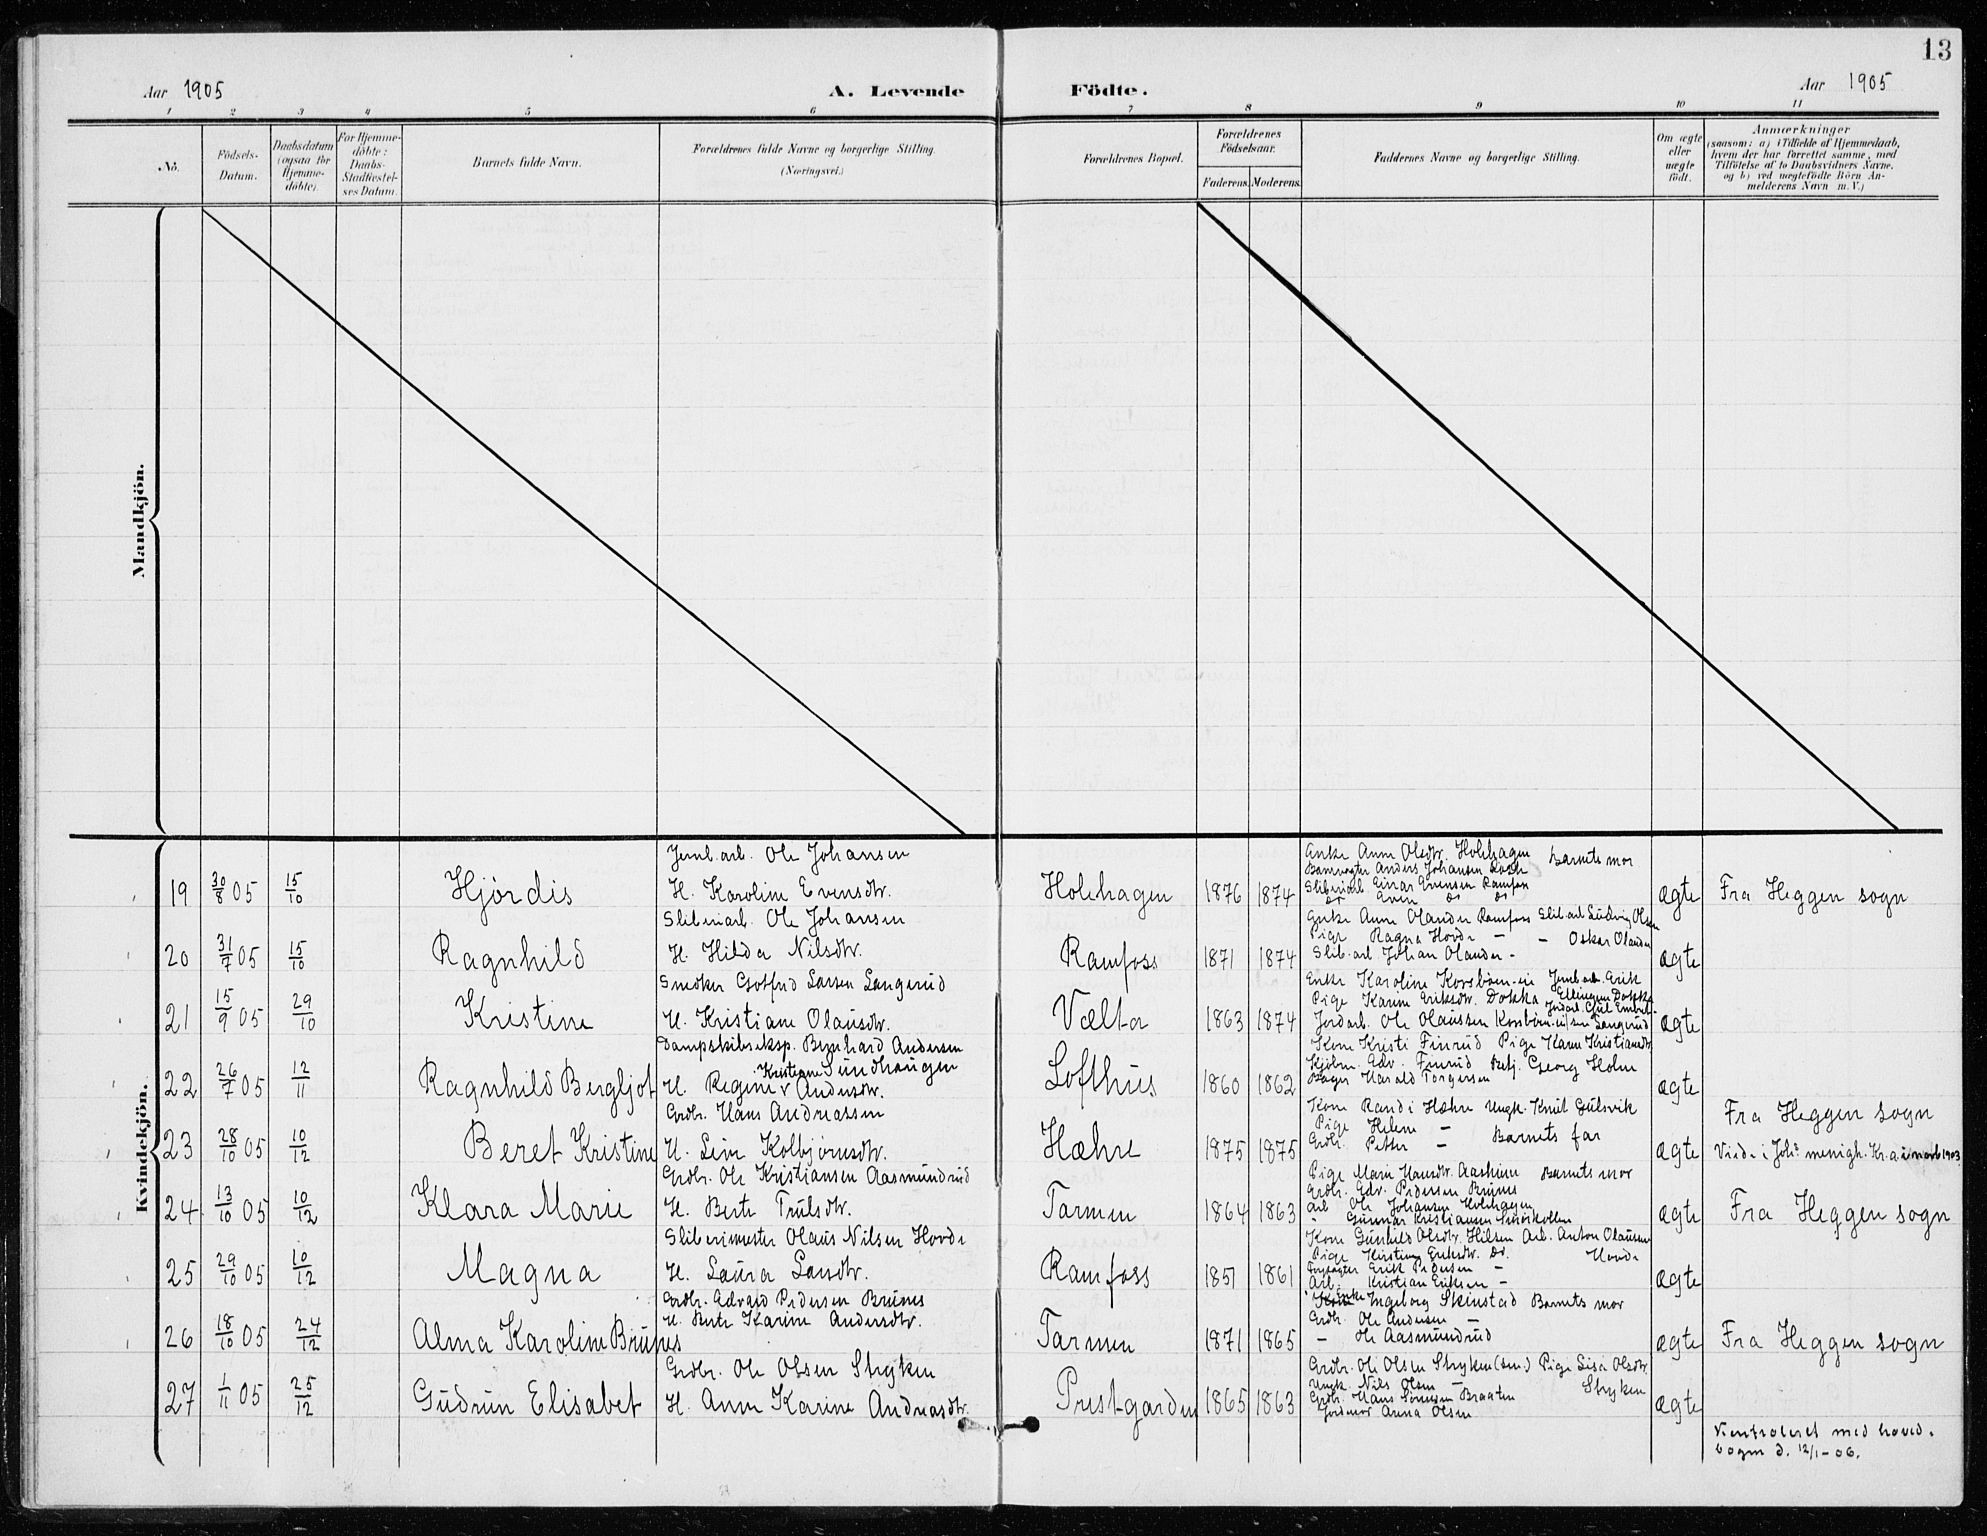 13
Aar 1905 A. Levende Födte. Aar 1905
1 2 3 4 5 6 7 8 9 10 11
No.
Födsels-Datum.
Daabsdatum (ogsaa for Hjemme-döbte).
For Hjemme-döbte: Daabs-Stadfæstel-ses Datum.
Barnets fulde Navn.
Forældrenes fulde Navne og borgerlige Stilling. (Næringsvei.)
Forældrenes Bopæl.
Forældrenes Födselsaar.
Faderens. Moderens.
Faddernes Navne og borgerlige Stilling.
Om ægte eller uægte födt.
Anmærkninger
(saasom: a) i Tilfælde af Hjemmedaab,
hvem der har forrettet samme, med
Tilföielse af to Daabsvidners Navne,
og b) ved uægtefödte Börn An-
melderens Navn m. V.)
Mandkjön.
Kvindekjön.
19 30/8 05 15/10 Hjördis
Jernb.arb. Ole Johansen
H. Karoline Evensdtr.
Holehagen 1876 1874
Enke Anne Olsdtr. Holehagen Barnets mor
Banevogter Anders Johansen
Sliberiarb. Einar Evensen Ramfos
do Even do do
ægte Fra Heggen sogn
20 31/7 05 15/10 Ragnhild
Sliberiarb. Ole Johansen
H. Hilda Nilsdtr.
Ramfoss 1871 1874
Enke Anne Olander Ramfoss Slib.arb Ludvig Olsen
Pige Ragna Hovde - - Oskar Olander
Slib.arb Johan Olander -
ægte
21 15/9 05 29/10 Kristine
Snedker Gotfred Larsen Langerud
H. Kristiane Olausdtr.
Vælta 1863 1874
Enke Karoline Korsbøen-ei Jernb.arb. Erik
Pige Karen Eriksdtr. Dokka Ellingsen Dokka
Jordarb. Ole Olaussen Korsbøen-ei Langerud
ægte
22 26/7 05 12/11 Ragnhild Bergljot
Dampskibseksp. Bernhard Andersen
Sundhaugen
H. Regine Kristiane Andersdtr.
Lofthus 1860 1862
Kone Kristi Finrud Pige Karen Kristiansdtr.
Kjøbm. Edv. Finrud Betj. Georg Holm
Bager Harald Torgersen
ægte
23 28/10 05 10/12 Beret Kristine
Grdbr. Hans Andreassen
H. Live Kolbjørnsdtr.
Hæhre 1875 1875
Kone Randi Hæhre Ungk. Knut Gulsvik
Pige Helene -
Grdbr. Petter - Barnets far
ægte Fra Heggen sogn
Viede i Joh. menigh. Kr.a. i 1903
24 13/10 05 10/12 Klara Marie
Grdbr. Ole Kristiansen Aasmundrud
H. Berte Trulsdtr.
Tarmen 1864 1863
Pige Marie Hansdtr. Barnets mor
Grdbr. Edv. Pedersen Brunes
Arb Ole Johansen Holehagen
" Gunnar Kristiansen
ægte Fra Heggen sogn
25 29/10 05 10/12 Magna
Slibermester Olaus Nilsen Hovde
H. Laura Larsdtr.
Ramfoss 1851 1861
Kone Gunhild Olsdtr. Hilsen Arb. Anton Olaussen
Pige Kirstine Eriksdtr. do. Hovde
Erik Pedersen -
Arb. Kristian Eriksen -
ægte
26 18/10 05 24/12 Alma Karoline Brunes
Grdbr. Edvard Pedersen Brunes
H. Berte Karine Andersdtr.
Tarmen 1871 1865
Enke Ingeborg Skinstad Barnets mor
Grdbr. Ole Andersen -
- Ole Aasmundrud
ægte Fra Heggen sogn
27 1/11 05 25/12 Gudrun Elisabet
Grdbr. Ole Olsen Stryken
H. Anne Karine Andreasdtr.
Prestgarden 1865 1863
Grdbr. Ole Olsen Stryken (sen.) Pige Lisa Olsdtr.
Ungk. Nils Olsen - Stryken
Grdbr. Hans Braaten
Jordmor Anna Olsen
ægte
med hoved-
bogen d. 12/1-06.